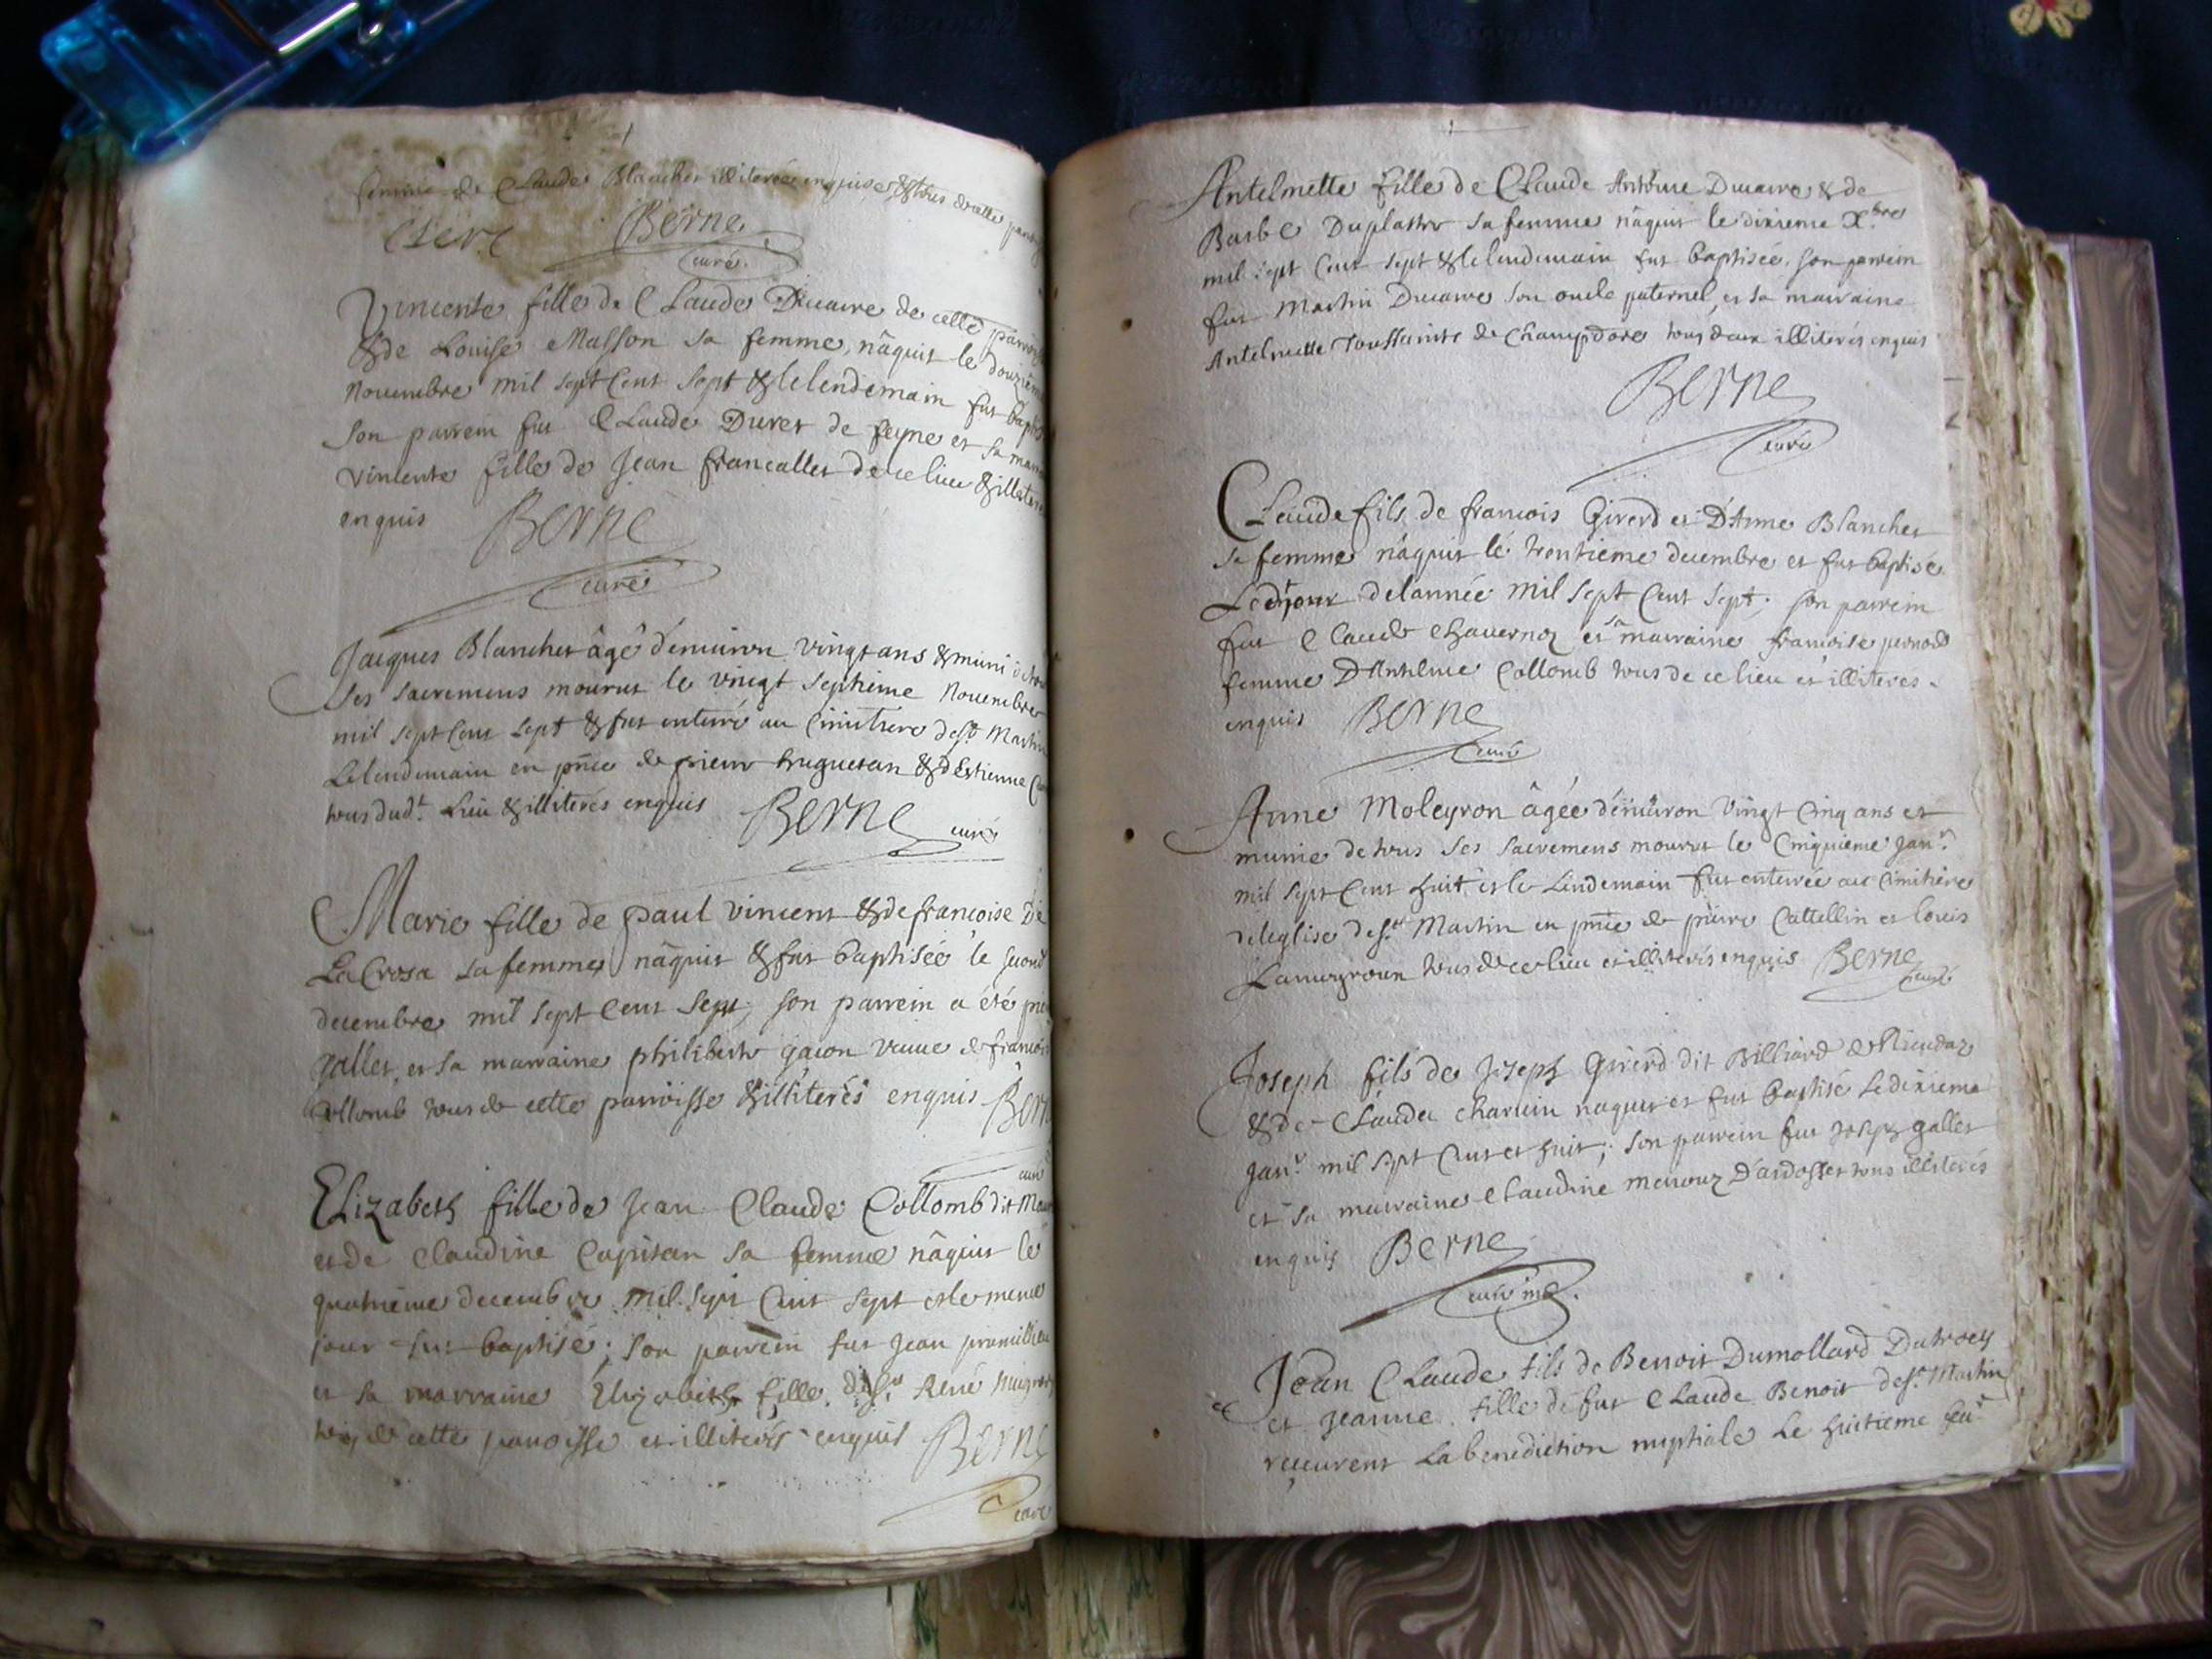 femme de Claude Blanchet illiterée enquise & tous de cette
Clerc Berne
curé.
Vincente fille de Claude Ducaire de cette parroisse
& de Louise Masson sa femme, nâquit le douzieme
Novembre mil sept cent sept & le lendemain fut baptis
son parrein fut Claude Duret de feyne et sa mar
vincente fille de Jean francallet de ce lieu & illiter
enquis Berne
curé
Jacques Blanchet âgé d'environ vingt ans & muni de tous
ses sacremens mourut le vingt septieme Novembre
mil sept cent sept & fut enterré au Cimitiere de st Martin
Le lendemain en pnce de pierre huguetan & d'Estienne
tous dudt. Lieu & illiterés enquis Berne curé
Marie fille de paul vincent & de francoise De
La Crosa sa femme nâquit & fut baptisée le second
decembre mil sept cent sept; son parrein a été pie
gallet, et sa marraine philiberte gacon veuve de francois
Collomb tous de cette parroisse & illiterés enquis Bern
curé
Elizabeth fille de Jean Claude Collomb dit
et de Claudine Capitan sa femme nâquit le
quatrieme decembre mil sept Cent sept et le meme
jour fut baptisé; son parrein fut Jean
et sa marraine Elizabeth fille de sr René
tous de cette paroisse et illiterés enquis Berne
curé
Antelmette fille de Claude Anthome Ducaire & de
Barbe Duplastre sa femme nâquit le dixieme Xbre
mil sept Cent sept & le lendemain fut baptisée, son parrein
fut Martin Ducaire son oncle paternel, et sa marraine
Antelmette Toussainte de Champdore tous deux illiterés enquis
Berne
curé
Claude fils de francois Girerd et D'Anne Blanchet
sa femme nâquit le trentieme decembre et fut baptisé
Led jour de l'année mil sept Cent sept; son parrein
fut Claude chavernoz et sa marraine francoise pernod
femme D'Antelme Collomb tous de ce lieu et illiterés.
enquis Berne
curé
Anne Moleyron âgée d'environ vingt Cinq ans et
munie de tous ses sacremens mourut le Cinquieme janr.
mil sept Cent huit, et le Lendemain fut enterrée au Cimitiere
de leglise de st. Martin en pnce de pierre Cattellin et louis
tous de ce lieu et illiterés enquis Berne
curé
Joseph fils de Joseph Girerd dit Billiard de Rieudaz
& de Claudа charvin naquit et fut baptisé le dixieme
janr. mil sept Cent et huit; son parrein fut Joseph gallet
et sa marraine Claudine menouz D'ardosset tous illiterés
enquis Berne
curé
Jean Claude fils de Benoit Dumollard Dutroey
et Jeanne fille de fut Claude Benoit de st. Martin
recurent La benediction nuptiale Le huitieme